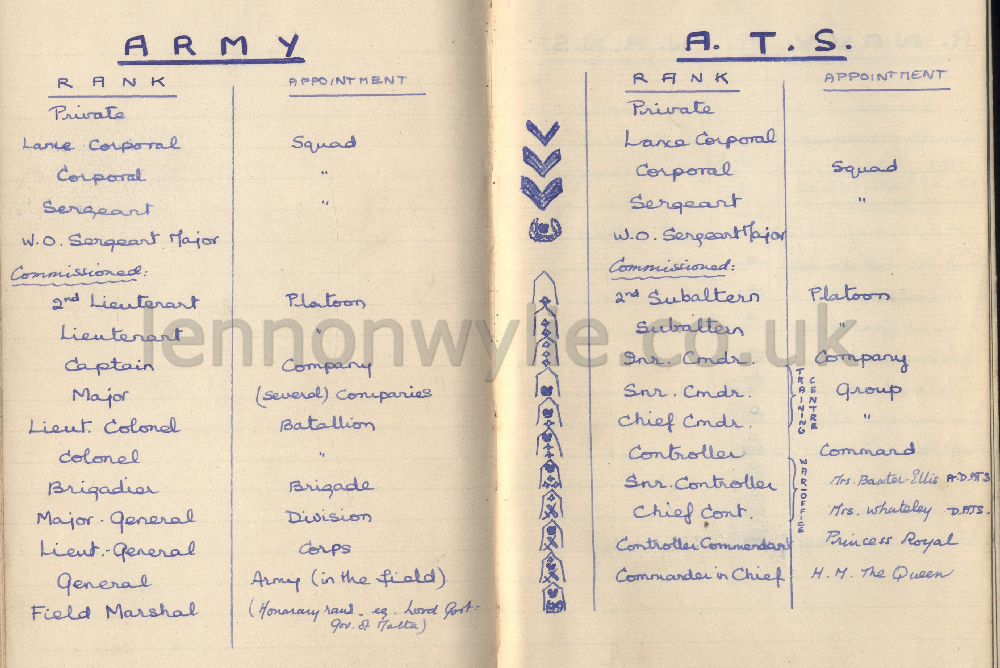 ARMY
RANK APPOINTMENT
Private
Lance Corporal Squad
Corporal "
Sergeant "
W.O. Sergeant Major
Commissioned:
2nd Lieutenant Platoon
Lieutenant "
Captain Company
Major (several) Companies
Lieut. Colonel Batallion
Colonel "
Brigadier Brigade
Major-General Division
Lieut.-General Corps
General Army (in the field)
Field Marshal (Honorary rank. eg. Lord Gort-
Gov. of Malta)
A.T.S.
RANK APPOINTMENT
Private
Lance Corporal
Corporal Squad
Sergeant "
W.O. Sergeant Major
Commissioned:
2nd Subaltern Platoon
Subaltern "
Snr. Cmdr. Company
Snr. Cmdr. Group
Chief Cmdr. "
TRAINING
CENTRE
Controller Command
Snr. Controller Mrs. Baxter-Ellis A.D.ATS
Chief Cont. Mrs. Whateley D.ATS.
WAR-OFFICE
Controller Commandant Princess Royal
Commander in Chief H.M. The Queen
lennonwylie.co.uk